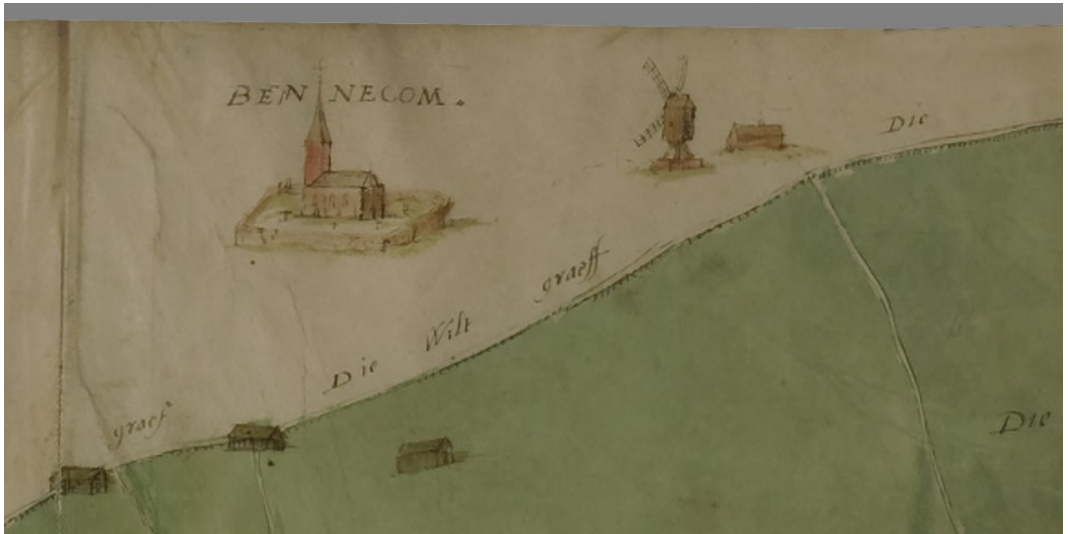 BENNECOM.
Die
Die Wilt graeff
graef
Die